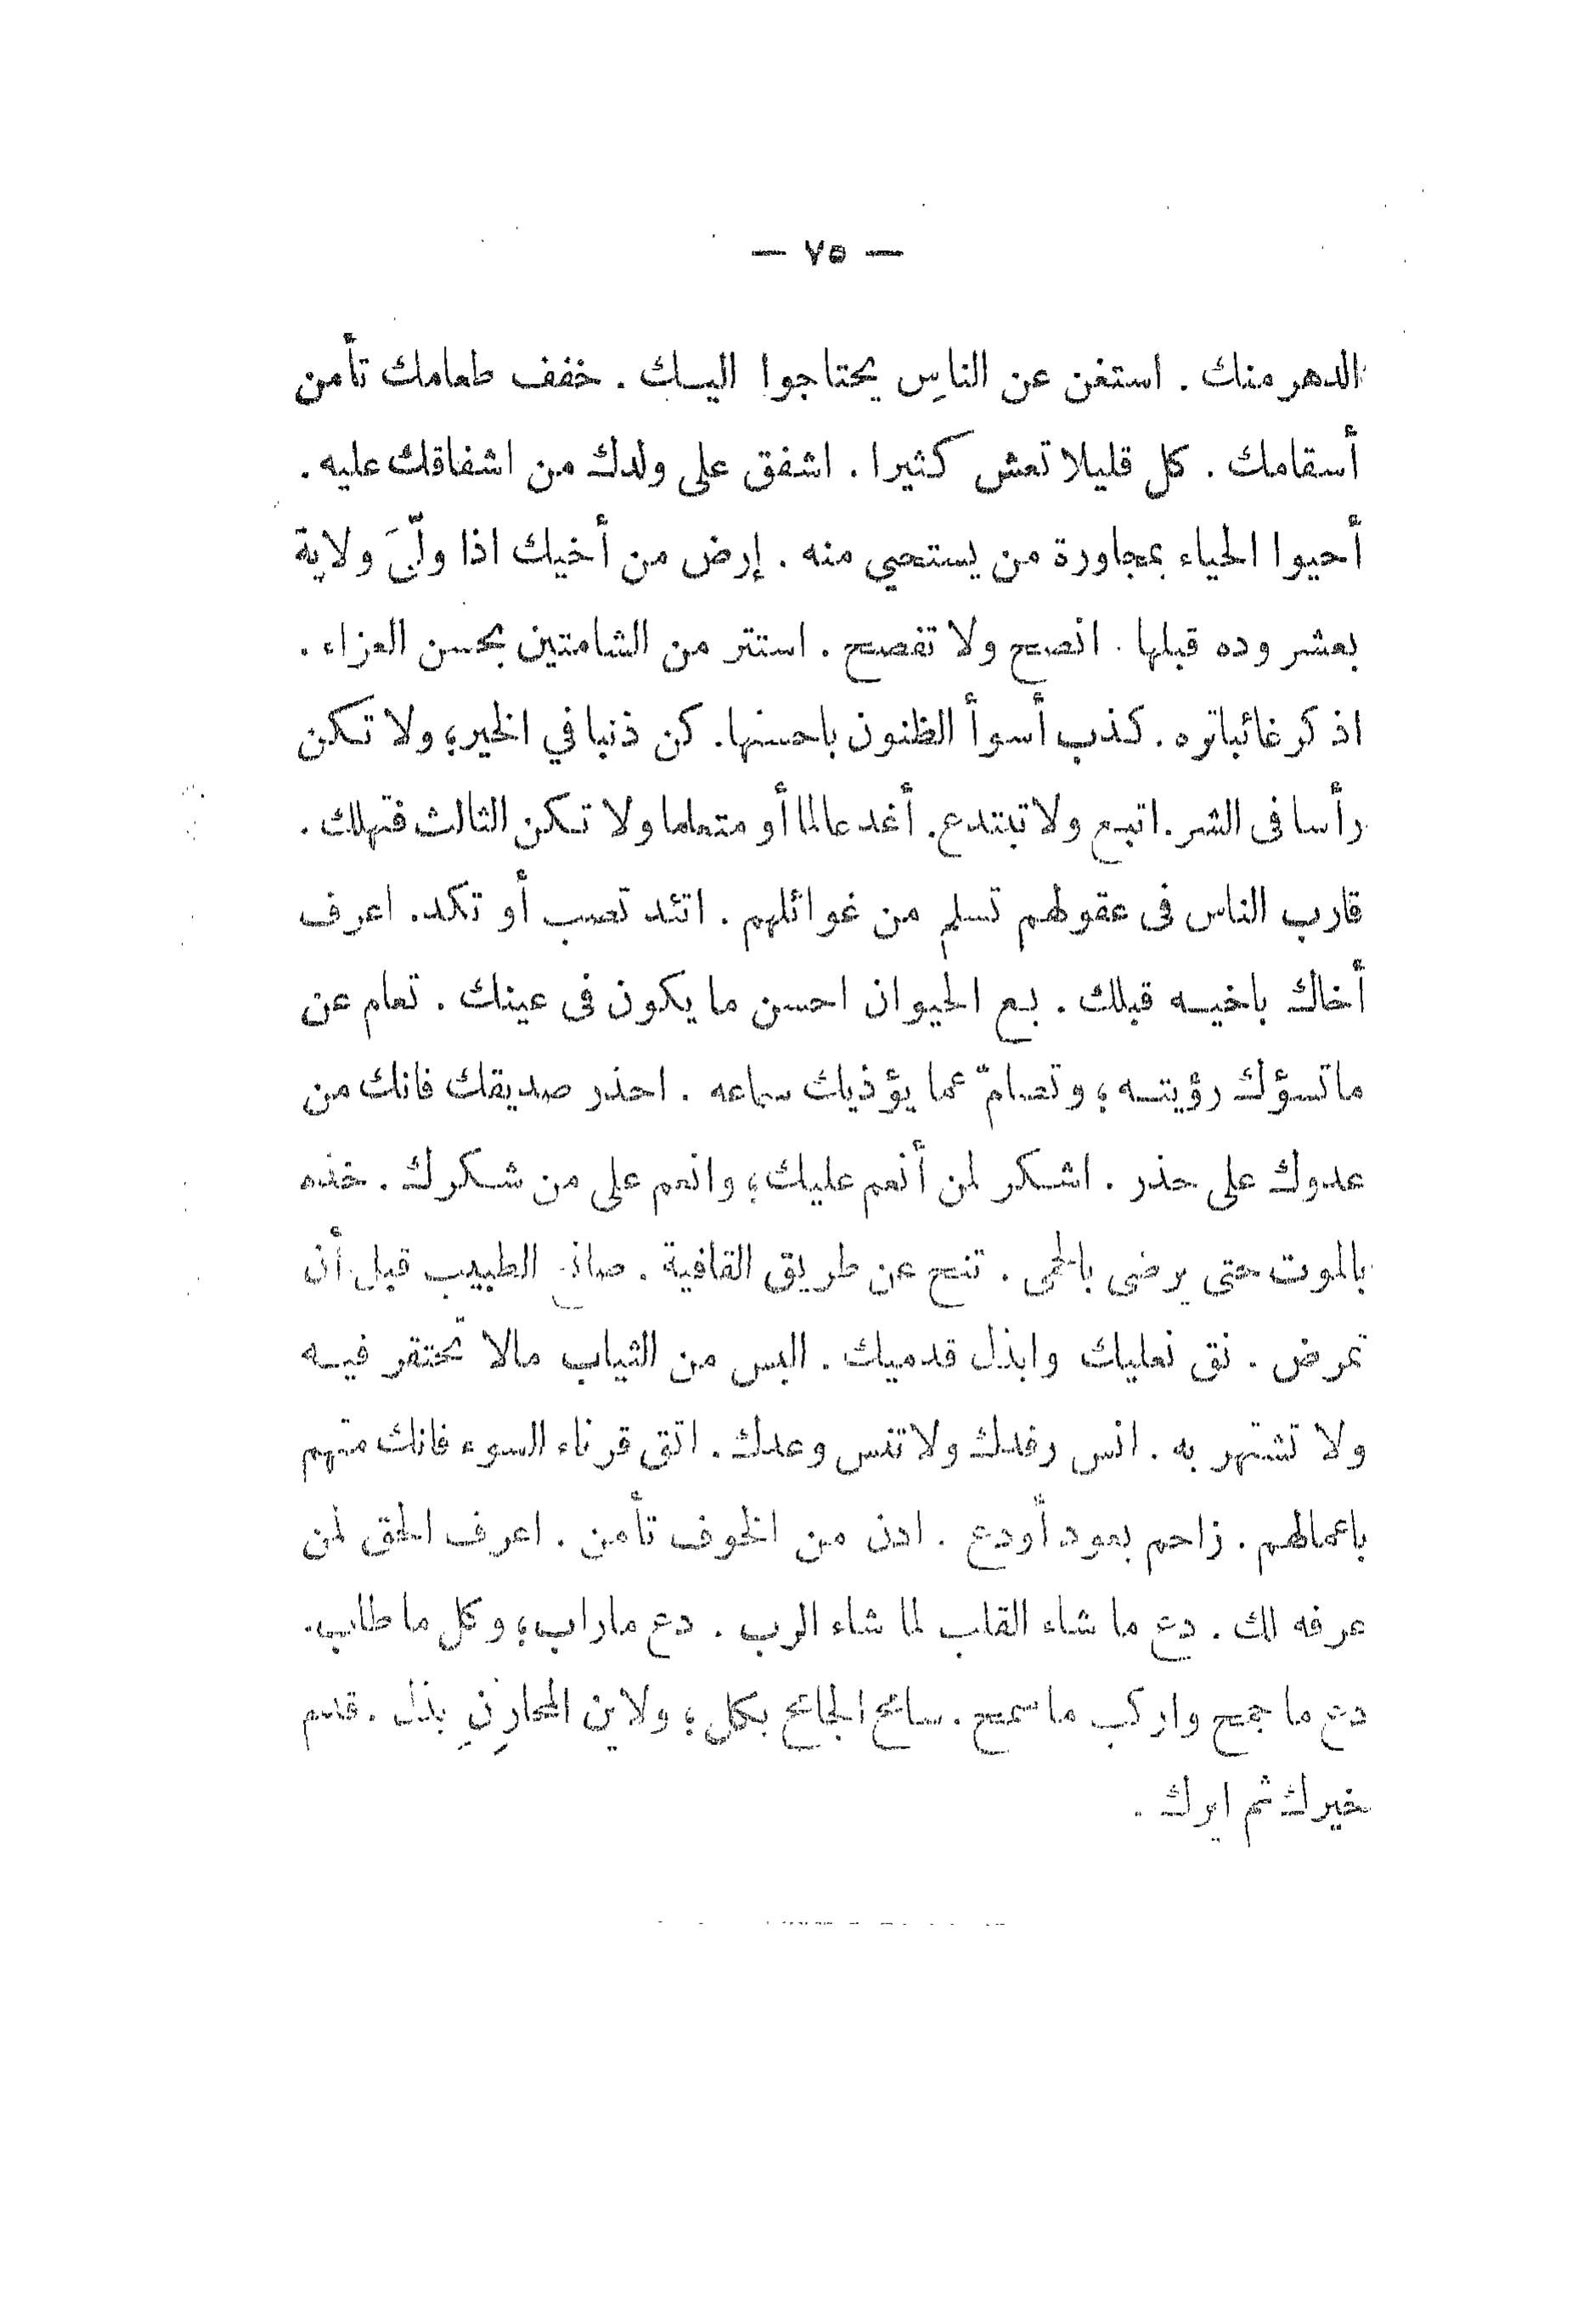 — ٧٥ —
الدهر منك . استغن عن الناسِ يحتاجوا اليك . خفف طعامك تأمن
أسقامك . كل قليلا تعش كثيرا . اشفق على ولدك من اشفاقك عليه .
أحيوا الحياء بمجاورة من يستحي منه . إرض من أخيك اذا ولّيَ ولاية
بعشر وده قبلها . انصح ولا تفصح . استتر من الشامتين بحسن العزاء .
اذكر غائبا تره . كذب أسوأ الظنون باحسنها . كن ذنبا في الخير ؛ ولا تكن
رأسا فى الشر . اتبع ولا تبتدع . أغد عالما أو متعلما ولا تكن الثالث فتهلك .
قارب الناس فى عقولهم تسلم من غوائلهم . اتئد تصب أو تكد . اعرف
أخاك باخيه قبلك . بع الحيوان احسن ما يكون فى عينك . تعام عن
ما تسؤك رؤيته ؛ وتصامّ عما يؤذيك سماعه . احذر صديقك فانك من
عدوك على حذر . اشكر لمن أنعم عليك ؛ وانعم على من شكرك . خذه
بالموت حتى يرضى بالحمى . تنح عن طريق القافية . صانع الطبيب قبل أن
تمرض . نق نعليك وابذل قدميك . البس من الثياب مالا تحتقر فيه
ولا تشتهر به . انس رفدك ولا تنس وعدك . اتق قرناء السوء فانك متهم
باعمالهم . زاحم بعود أودع . ادن من الخوف تأمن . اعرف الحق لمن
عرفه لك . دع ما شاء القلب لما شاء الرب . دع ما راب ؛ وكل ما طاب .
دع ما جمح واركب ما سمح . سامح الجامح بكل ؛ ولاين المحارِنِ بذل . قدم
خيرك ثم ايرك .